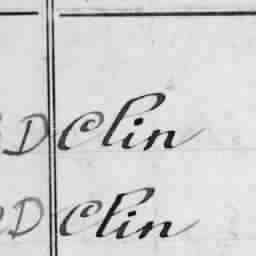 D Clin
D Clin